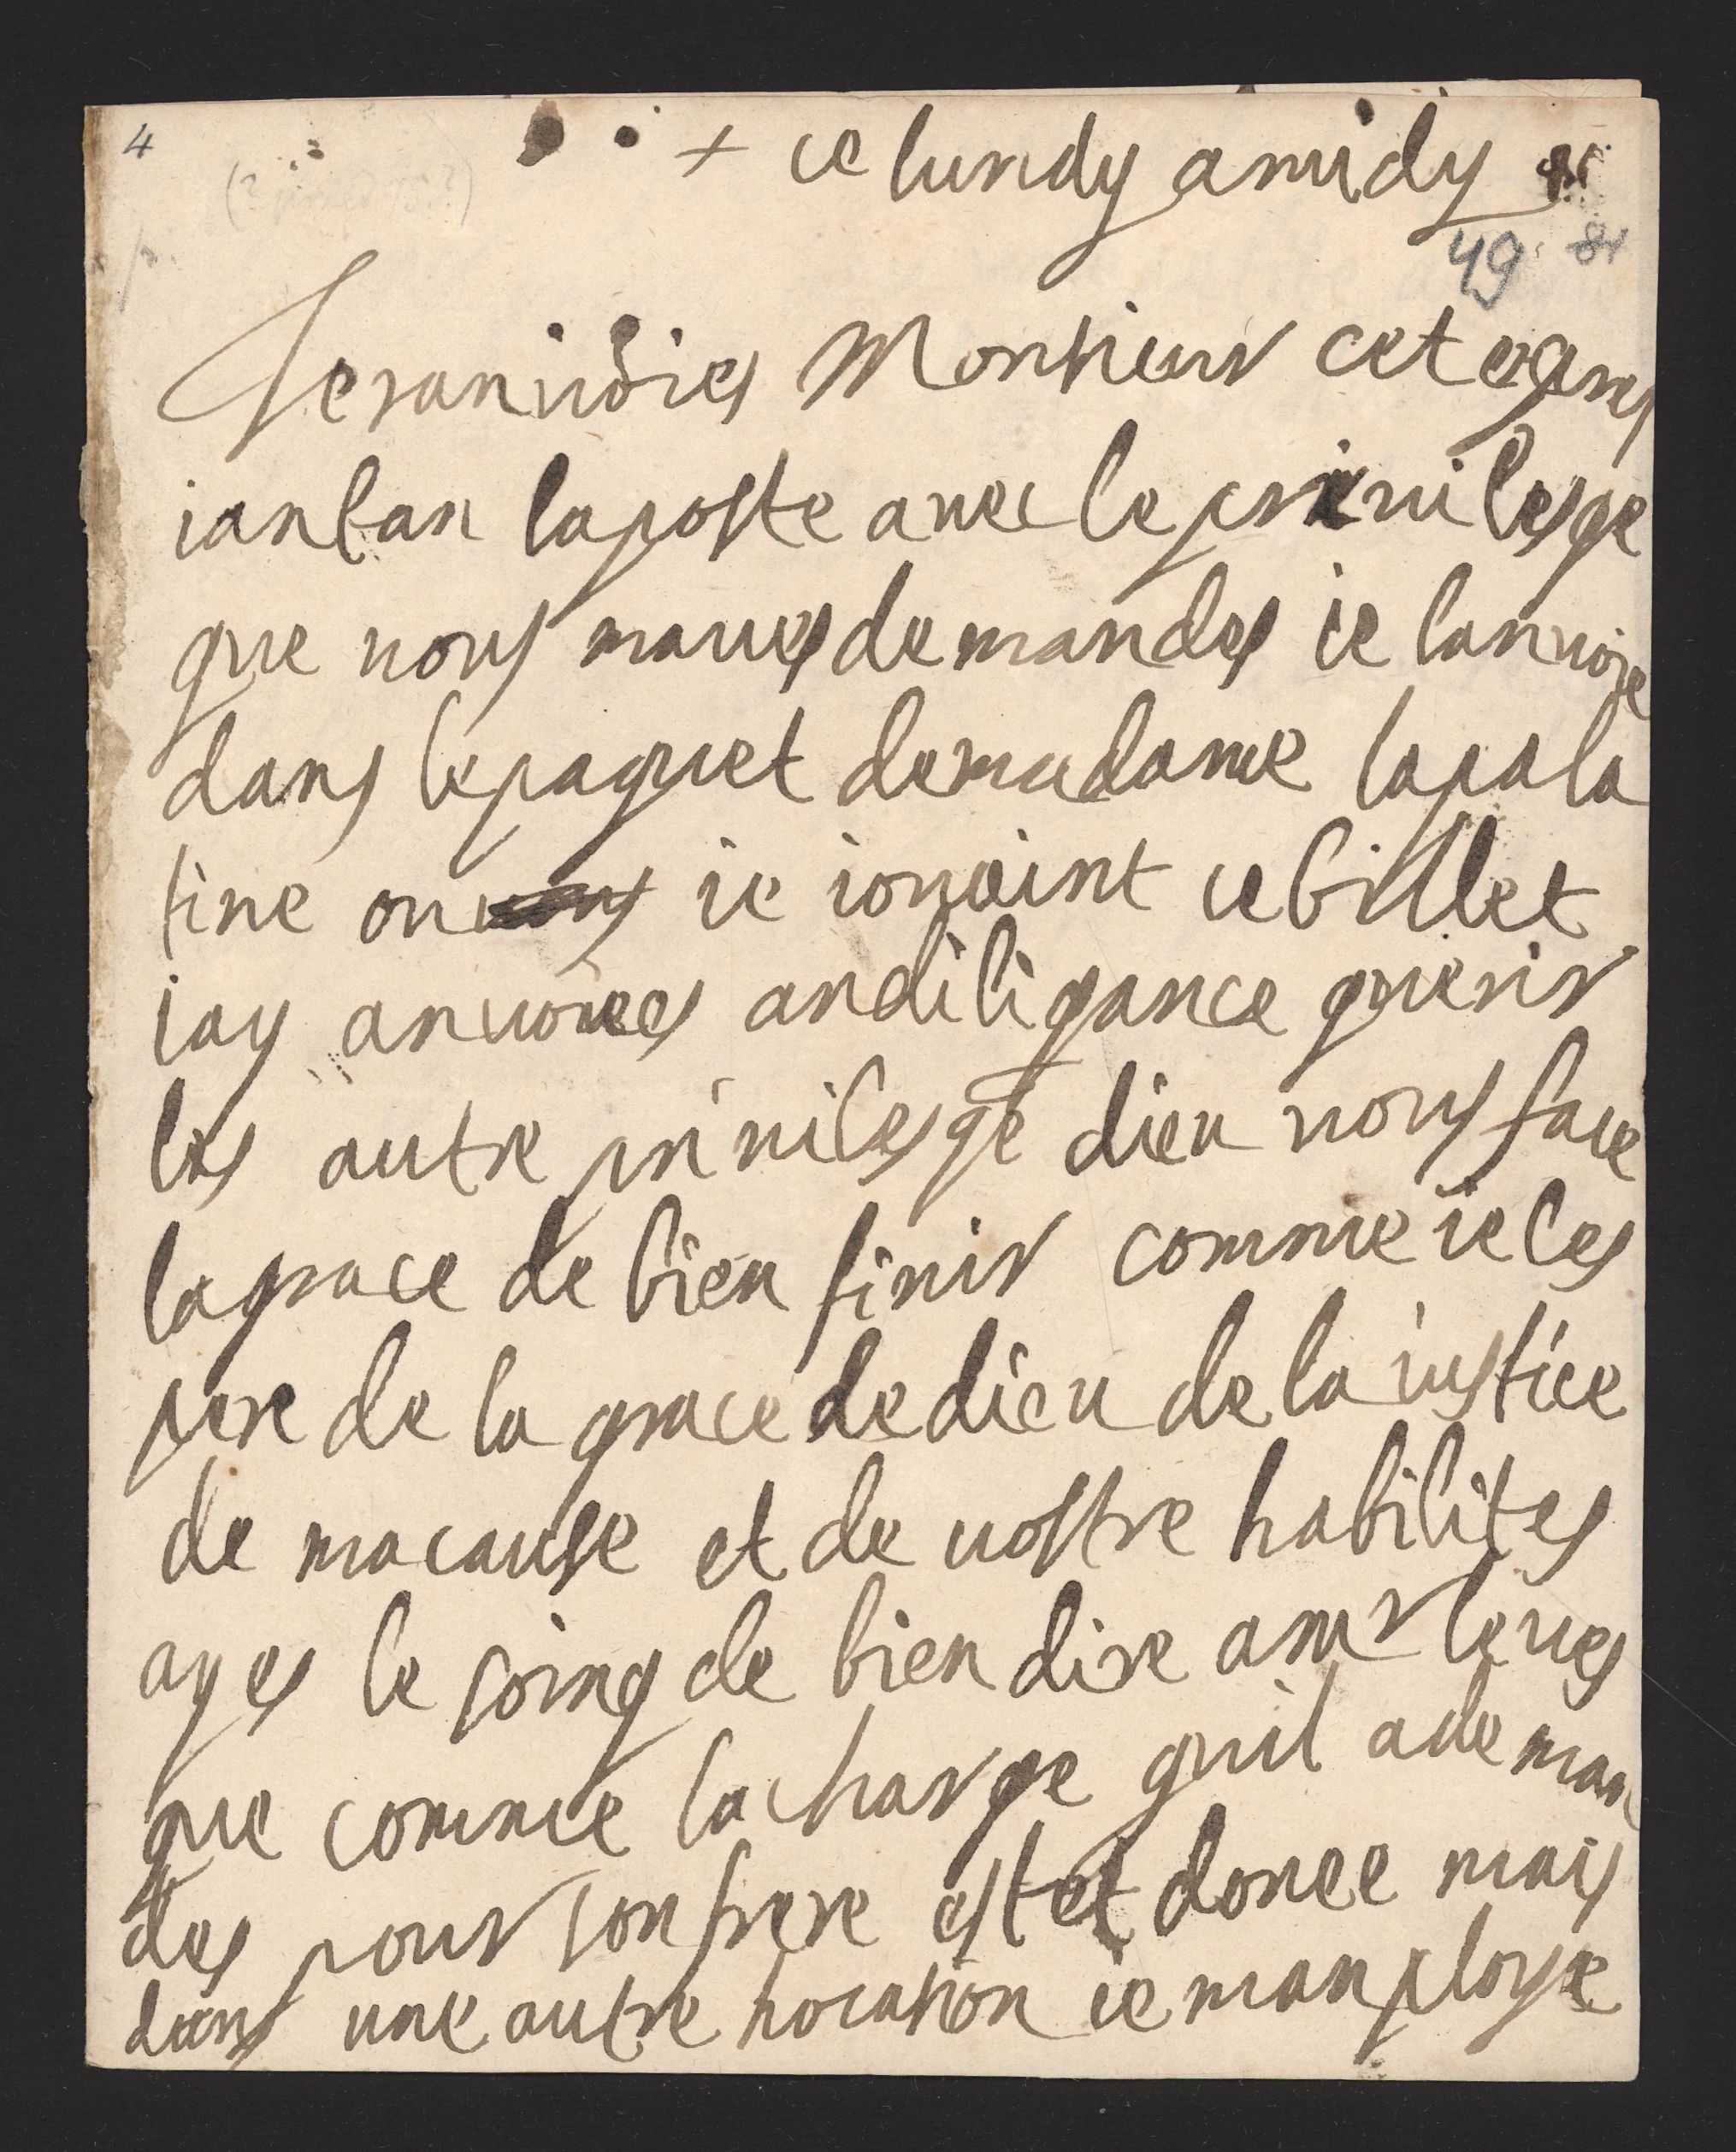 4
+ ce lundy amidy
49 81
Je ranuoies Monsieur cet
iantan laposte auec le priuilesge
que uous maues demandes ie lanuoie
dans lepaquet demadame lapala
tine ou ie iouoint ce billet
iay anuoiees andiligance querir
les autre priuilesge dieu nous face
lagrace de bien finir comme ieles
pere de la grace dedieu de la iustice
de macause et de uostre habilites
ayes le soing de bien dire amr
que comme lacharge quil ademan
des pour son frere estet donee mais
dans une autre hocation ie manploye